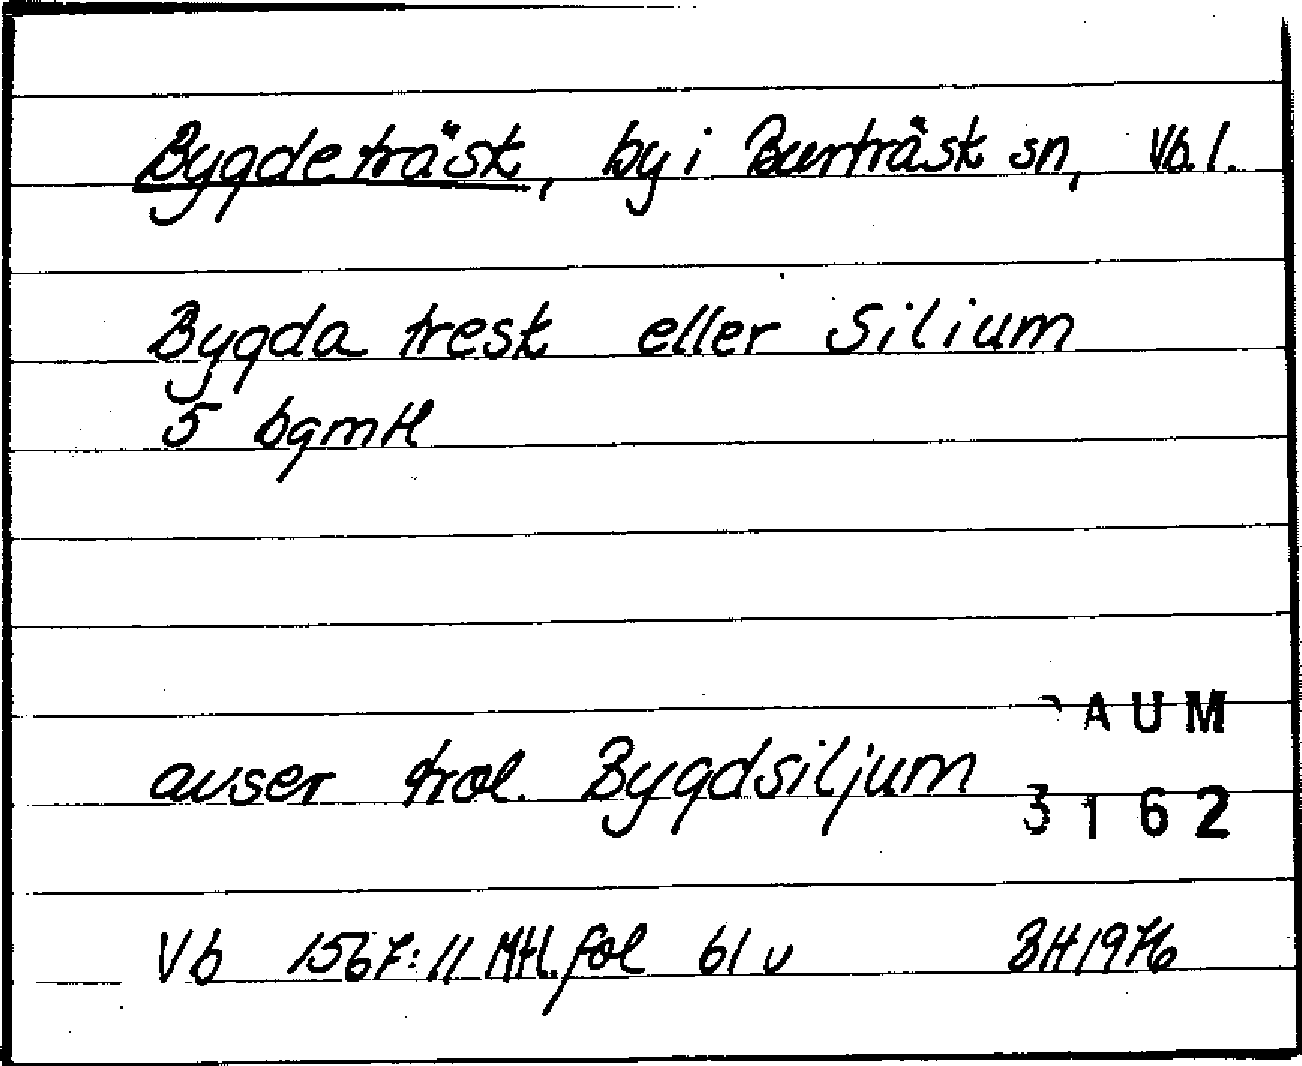 Bygdeträsk, by i Burträsk sn, Vb. l.
Bygda tresk eller Silium
5 bgmtl
DAUM
avser trol. Bygdsiljum
3162
Vb 1567:11 Mtl. fol 61 v BH 1976